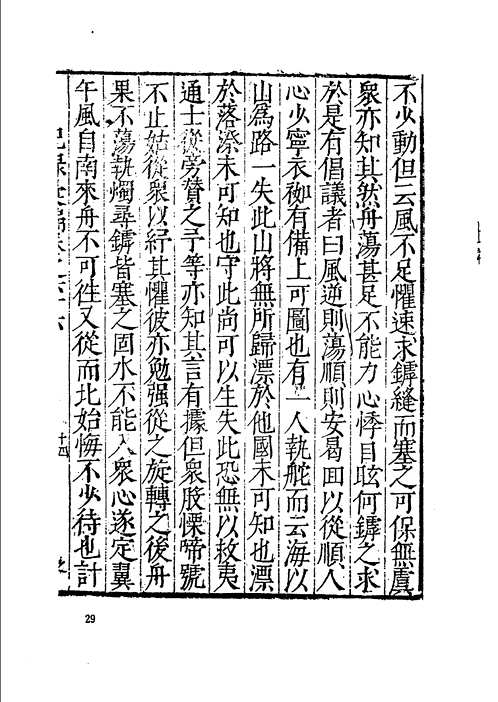 不少動但云風不足懼速求罅縫而塞之可保無虞
衆亦知其然舟蕩甚足不能力心悸目眩何罅之求
於是有倡議者曰風逆則蕩順則安曷回以從順人
心少寧衣袽有備上可圖也有一人執舵而云海以
山爲路一失此山將無所歸漂於他國未可知也漂
於落漈未可知也守此尚可以生失此恐無以救夷
通士從旁賛之予等亦知其言有據但衆股慄啼號
不止姑從衆以紓其懼彼亦勉强從之旋轉之後舟
果不蕩執燭尋罅皆塞之固水不能入衆心遂定翼
午風自南來舟不可徃又從而北始悔不少待也計
紀錄彙編卷之六十六
十四
29